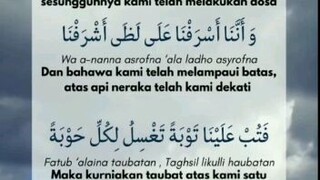 sesungguhnya kami telah melakukan dosa
وَ أَنَّنَا أَسْرَفْنَا عَلَى لَظَى أَشْرَفْنَا
Wa a-nanna asrofna 'ala ladho asyrofna
Dan bahawa kami telah melampaui batas,
atas api neraka telah kami dekati
فَتُبْ عَلَيْنَا تَوْبَةً تَغْسِلُ لِكُلِّ حَوْبَةً
Fatub 'alaina taubatan , Taghsil likulli haubatan
Maka kurniakan taubat atas kami satu